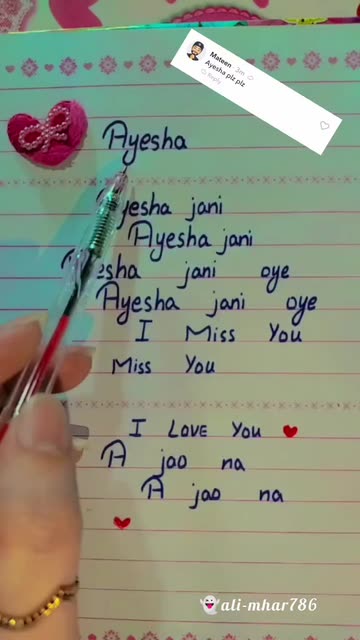 Mateen 3m
Ayesha plz plz
Reply
Ayesha
Ayesha jani
Ayesha jani
esha jani oye
Ayesha jani oye
I Miss You
Miss You
I LOVE YOU
A jao na
A jao na
ali-mhar786